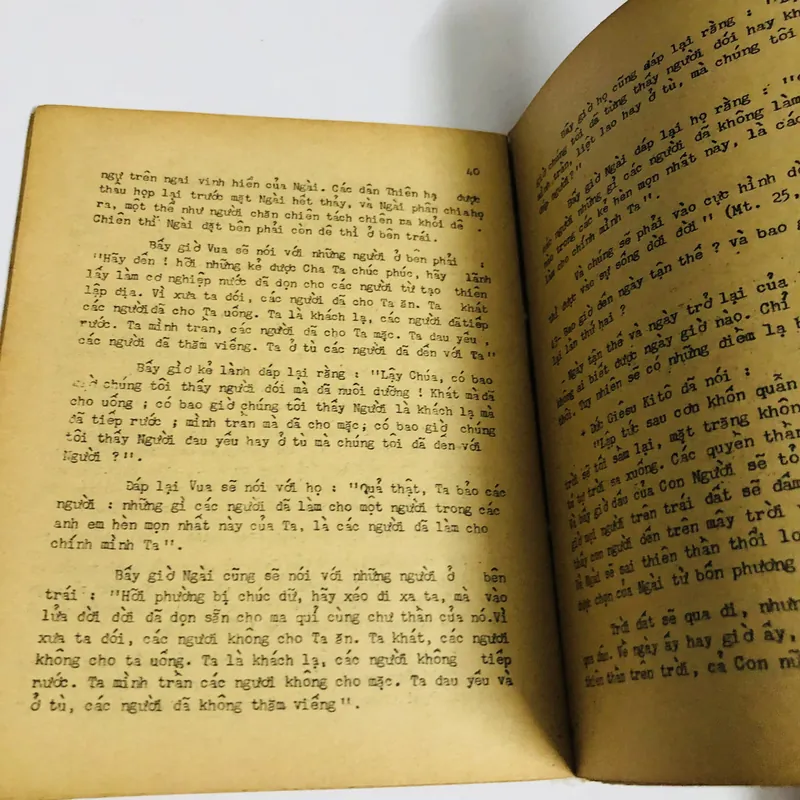 40
ngự trên ngai vinh hiển của Ngài. Các dân Thiên hạ được
thâu họp lại trước mặt Ngài hết thảy, và Ngài phân chiahọ
ra, một thể như người chăn chiên tách chiên ra khỏi dê .
Chiên thì Ngài đặt bên phải còn dê thì ở bên trái.
Bấy giờ Vua sẽ nói với những người ở bên phải :
"Hãy đến ! hỡi những kẻ được Cha Ta chúc phúc, hãy lãnh
lấy làm cơ nghiệp nước đã dọn cho các người từ tạo thiên
lập địa. Vì xưa ta đói, các người đã cho Ta ăn. Ta khát
các người đã cho Ta uống. Ta là khách lạ, các người đãtiếp
rước. Ta mình tran, các người đã cho Ta mặc. Ta đau yếu ,
các người đã thăm viếng. Ta ở tù các người đã đến với Ta"
Bấy giơ kẻ lành đáp lại rằng : "Lậy Chúa, có bao
giờ chúng tôi thấy người đói mà đã nuôi dưỡng ! Khát màđã
cho uống ; có bao giờ chúng tôi thấy Người là khách lạ mà
đã tiếp rước ; mình tran mà đã cho mặc; có bao giờ chúng
tôi thấy Người đau yếu hay ở tù mà chúng tôi đã đến với
Người ?".
Đáp lại Vua sẽ nói với họ : "Quả thật, Ta bảo các
người : những gì các người đã làm cho một người trong các
anh em hèn mọn nhất này của Ta, là các người đã làm cho
chính mình Ta".
Bấy giờ Ngài cũng sẽ nói với những người ở bên
trái : "Hỡi phường bị chúc dữ, hãy xéo đi xa ta, mà vào
lửa đời đời đã dọn sẵn cho ma quỉ cùng chư thần của nó.Vì
xưa ta đói, các người không cho Ta ăn. Ta khát, các người
không cho ta uống. Ta là khách lạ, các người không tiếp
rước. Ta mình trần các người không cho mặc. Ta đau yếu và
ở tù, các người đã không thăm viếng".
Bấy giờ họ cũng đáp lại rằng :
giờ chúng tôi đã từng thấy người đói hay kh
trần, liệt lao hay ở tù, mà chúng tôi
người ?"
Bấy giờ Ngài đáp lại họ rằng :
các người những gì các người đã không làm
trong các kẻ hèn mọn nhất này, là các
làm cho chính mình Ta".
Và chúng sẽ phải vào cực hình đờ
thì được vào sự sống đời đời" (Mt. 25,
Bao giờ đến ngày tận thế ? và bao g
lại lần thứ hai ?
- Ngày tận thế và ngày trở lại của
không ai biết được ngày giờ nào. Chỉ
thôi. Tuy nhiên sẽ có những điềm lạ b
+ Đức Giêsu Kitô đã nói :
"Lập tức sau cơn khốn quẫn
trời sẽ tối sầm lại, mặt trăng khôn
tú tự trời sa xuống. Các quyền thần
Và bấy giờ dấu của Con Người sẽ tỏ
giờ mọi người trên trái đất sẽ đấm
thấy con người đến trên mây trời
Và Ngài sẽ sai thiên thần thổi lo
được chọn của Ngài từ bốn phương
Trời đất sẽ qua đi, nhưn
qua đâu. Về ngày ấy hay giờ ấy,
thiên thần trên trời, cả Con nữ